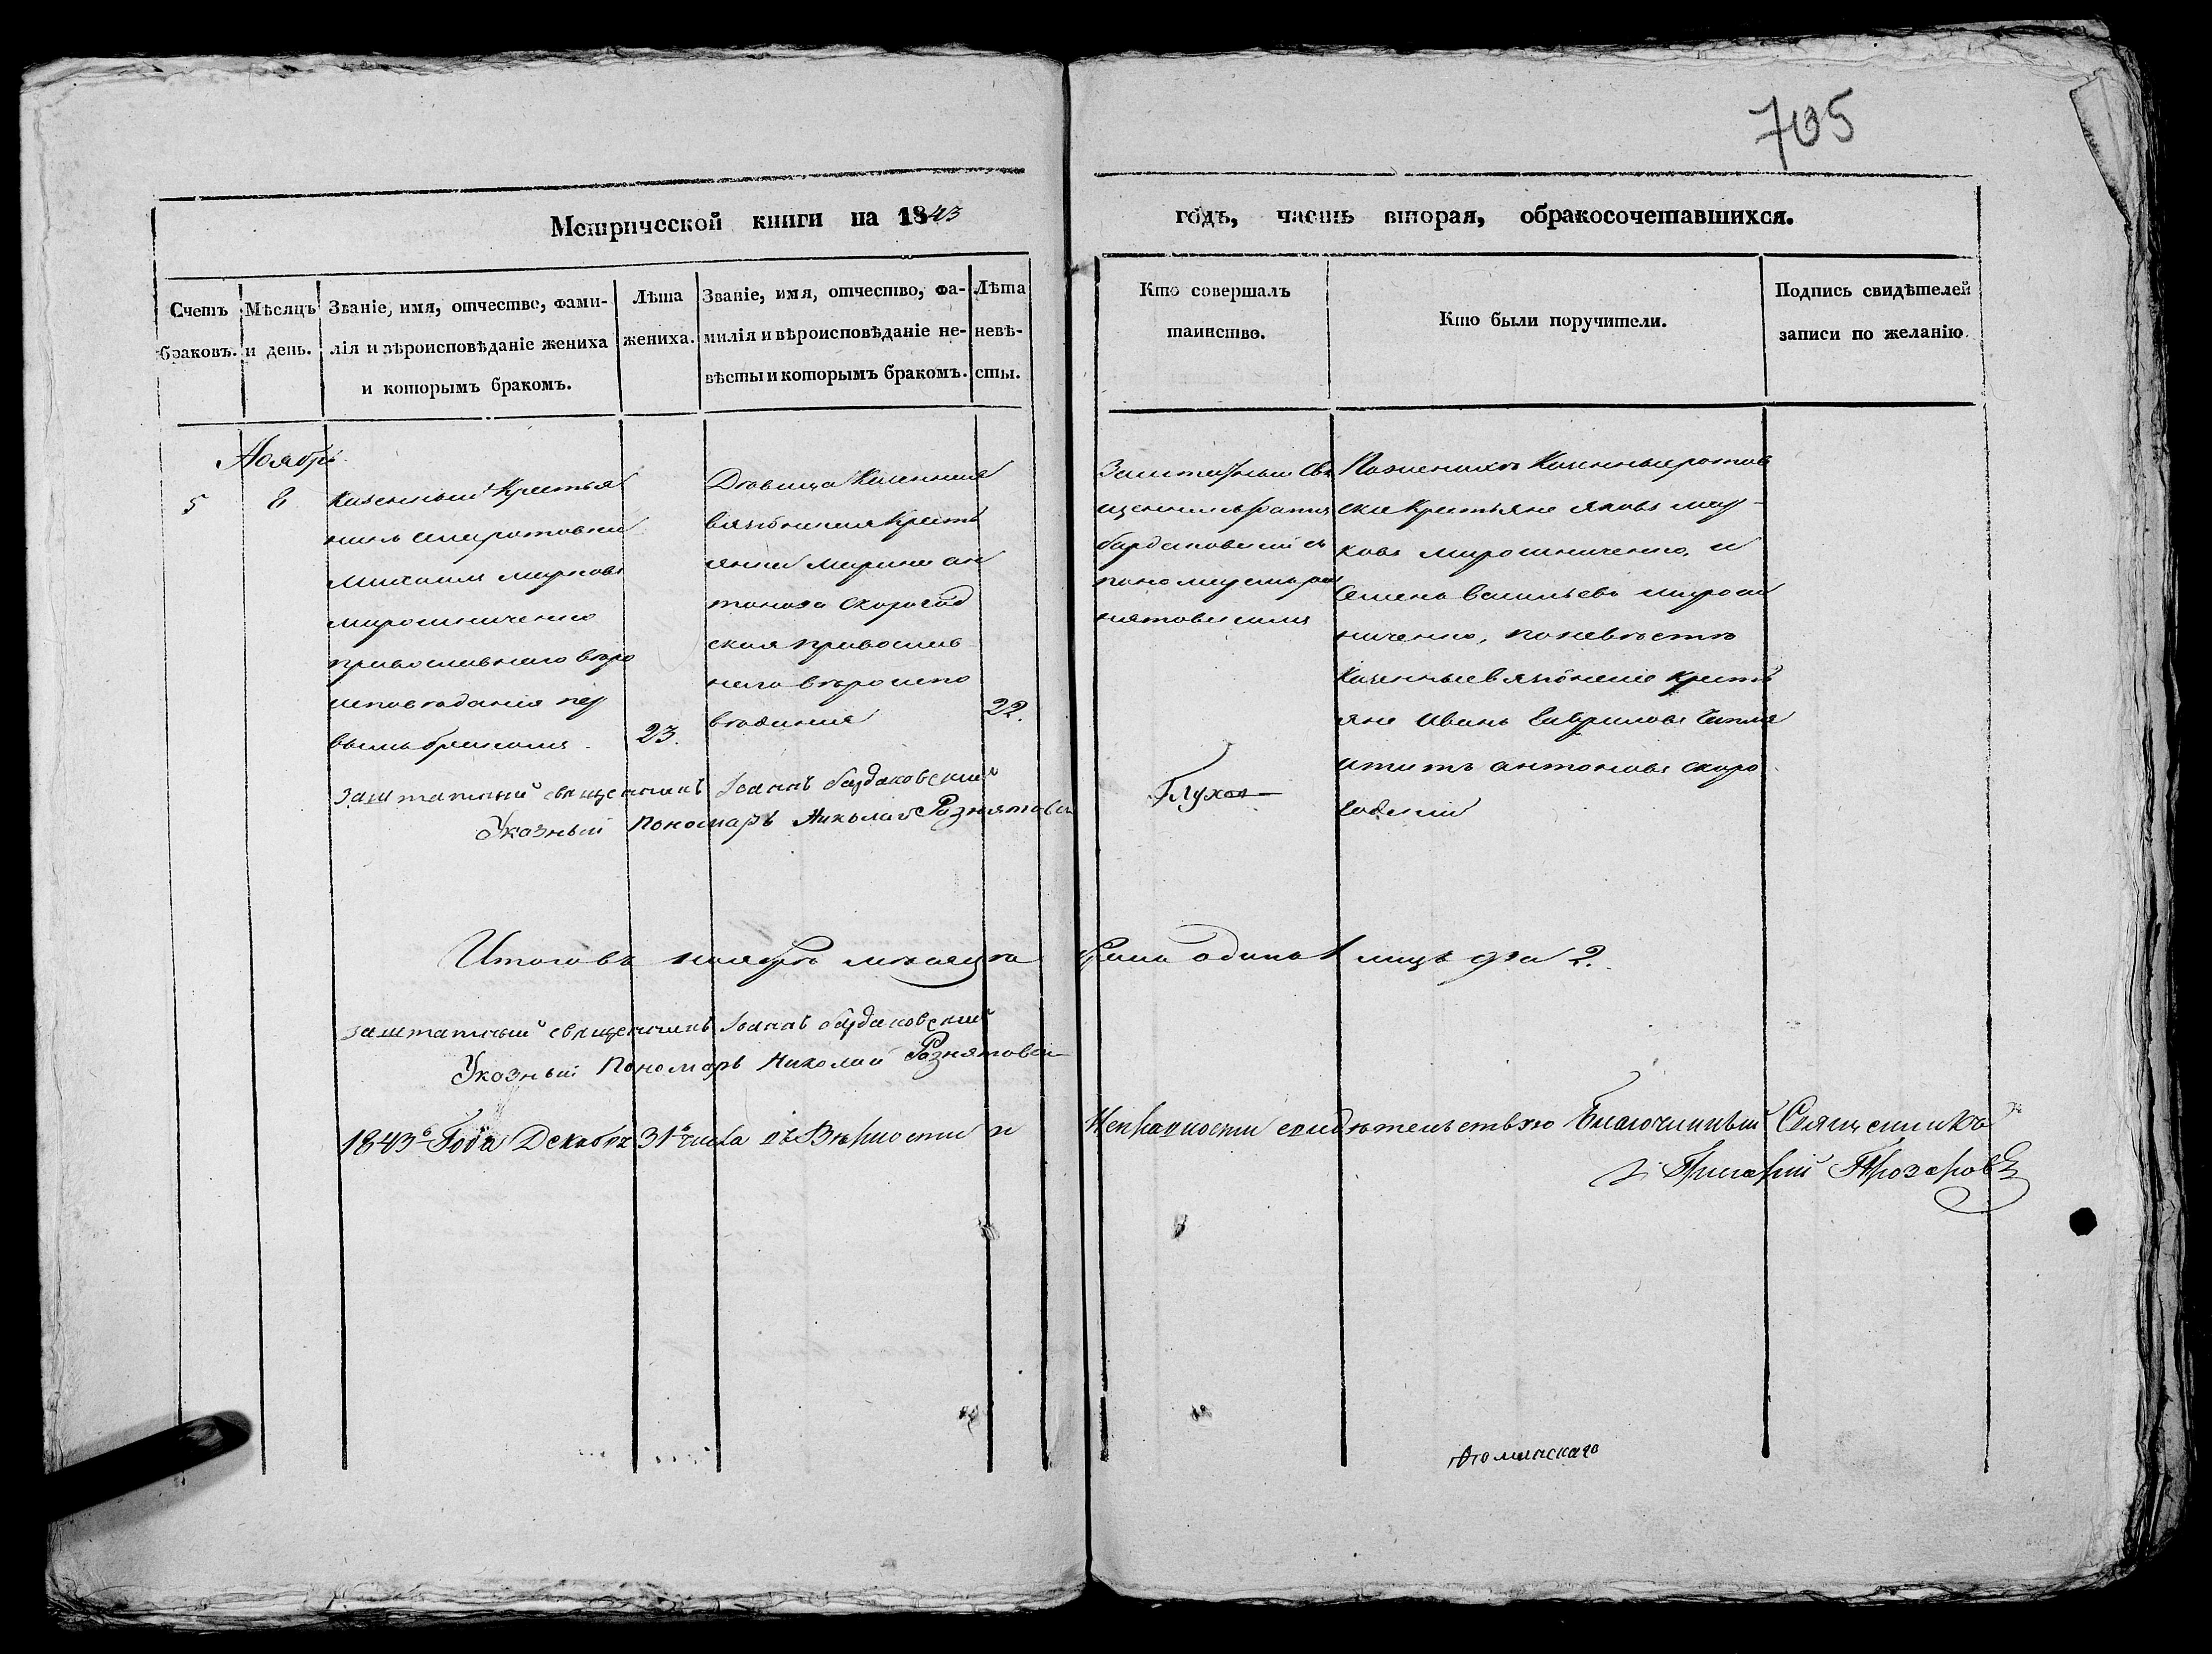 705
Метрической книги на 1843
годъ, часть вторая, обракосочетавшихся.
Счетъ браковъ.
Мѣсяцъ и день.
Званіе, имя, отчество, фами-
лія и вѣроисповѣданіе жениха
и которымъ бракомъ.
Лѣта
жениха.
Званіе, имя, отчество, фа-
милія и вѣроисповѣданіе не-
вѣсты и которымъ бракомъ.
Лѣта
невѣ-
сты.
Кто совершалъ
таинство.
Кто были поручители.
Подпись свидѣтелей
записи по желанію.
Ноябрь
5
8
Казенный Крестья
нинъ
Михаилъ Марковъ
мирошниченко
православнаго вѣро
исповѣданія пер
вымъ бракомъ.
23.
Дѣвица Казенная
крестъ
янка Марина ан
тонова Скорогод
ская православ
наго вѣроиспо
вѣданія
22.
Заштатный Свя
щенникъ
бардаковскій съ
пономаремъ роз
нятовскимъ
По женихѣ Казенные
Крестьяне Яковъ мар
ковъ мирошниченко, и
Семенъ васильевъ мирош
ниченко, по невѣстѣ
Казенные крестъ
яне Иванъ Гавриловъ
антоновъ скоро
годскій
заштатный священникъ Іоаннъ бардаковскій
Указный Пономарь Николай Рознятовскій
Глухоя
Итого въ ноябрѣ мѣсяцѣ
браковъ одинъ 1 лицъ два 2.
заштатный священникъ Іоаннъ бардаковскій
Указный Пономарь Николай Рознятовскій
1843го Года Декабря 31го числа въ Вѣрности и
Исправности свидѣтельствую Благочинный Священникъ
Григорій Прозоровъ